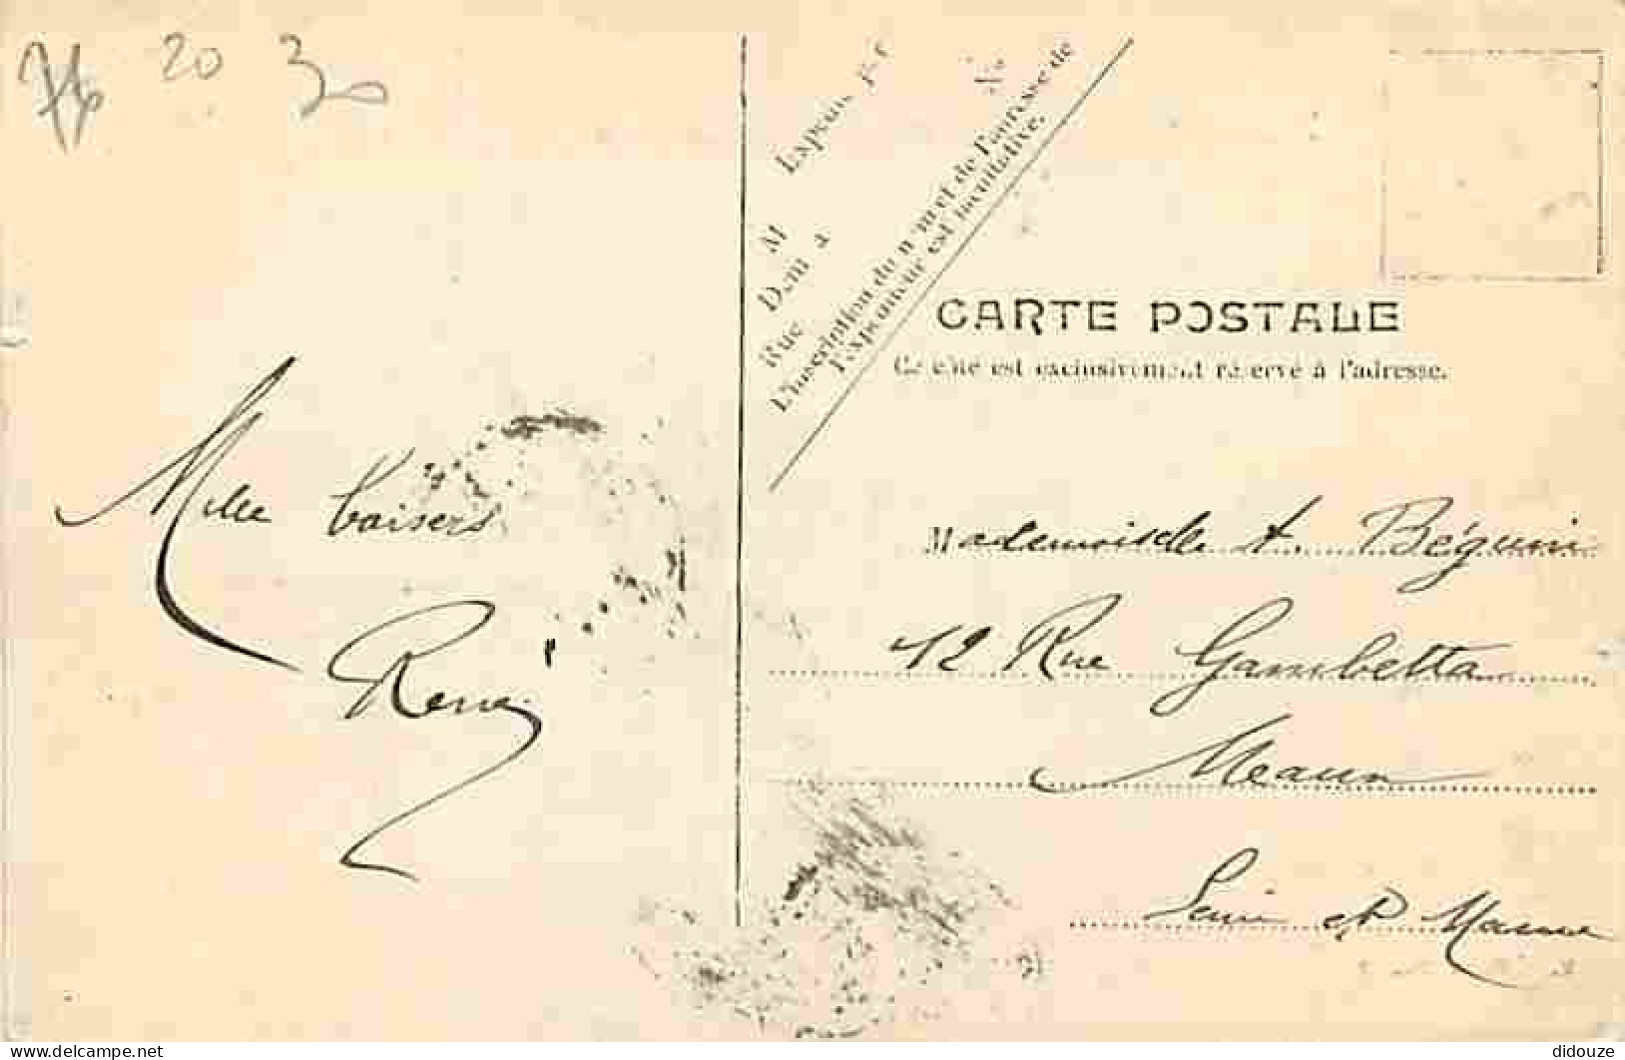 20
Mille baisers
René
M
Rue
L'inscription du nom et de l'adresse de
l'expéditeur est facultative.
CARTE POSTALE
Ce côté est exclusivement réservé à l'adresse.
Mademoiselle A. Béguin
12 Rue Gambetta
Meaux
Seine et Marne
delcampe.net
didouze